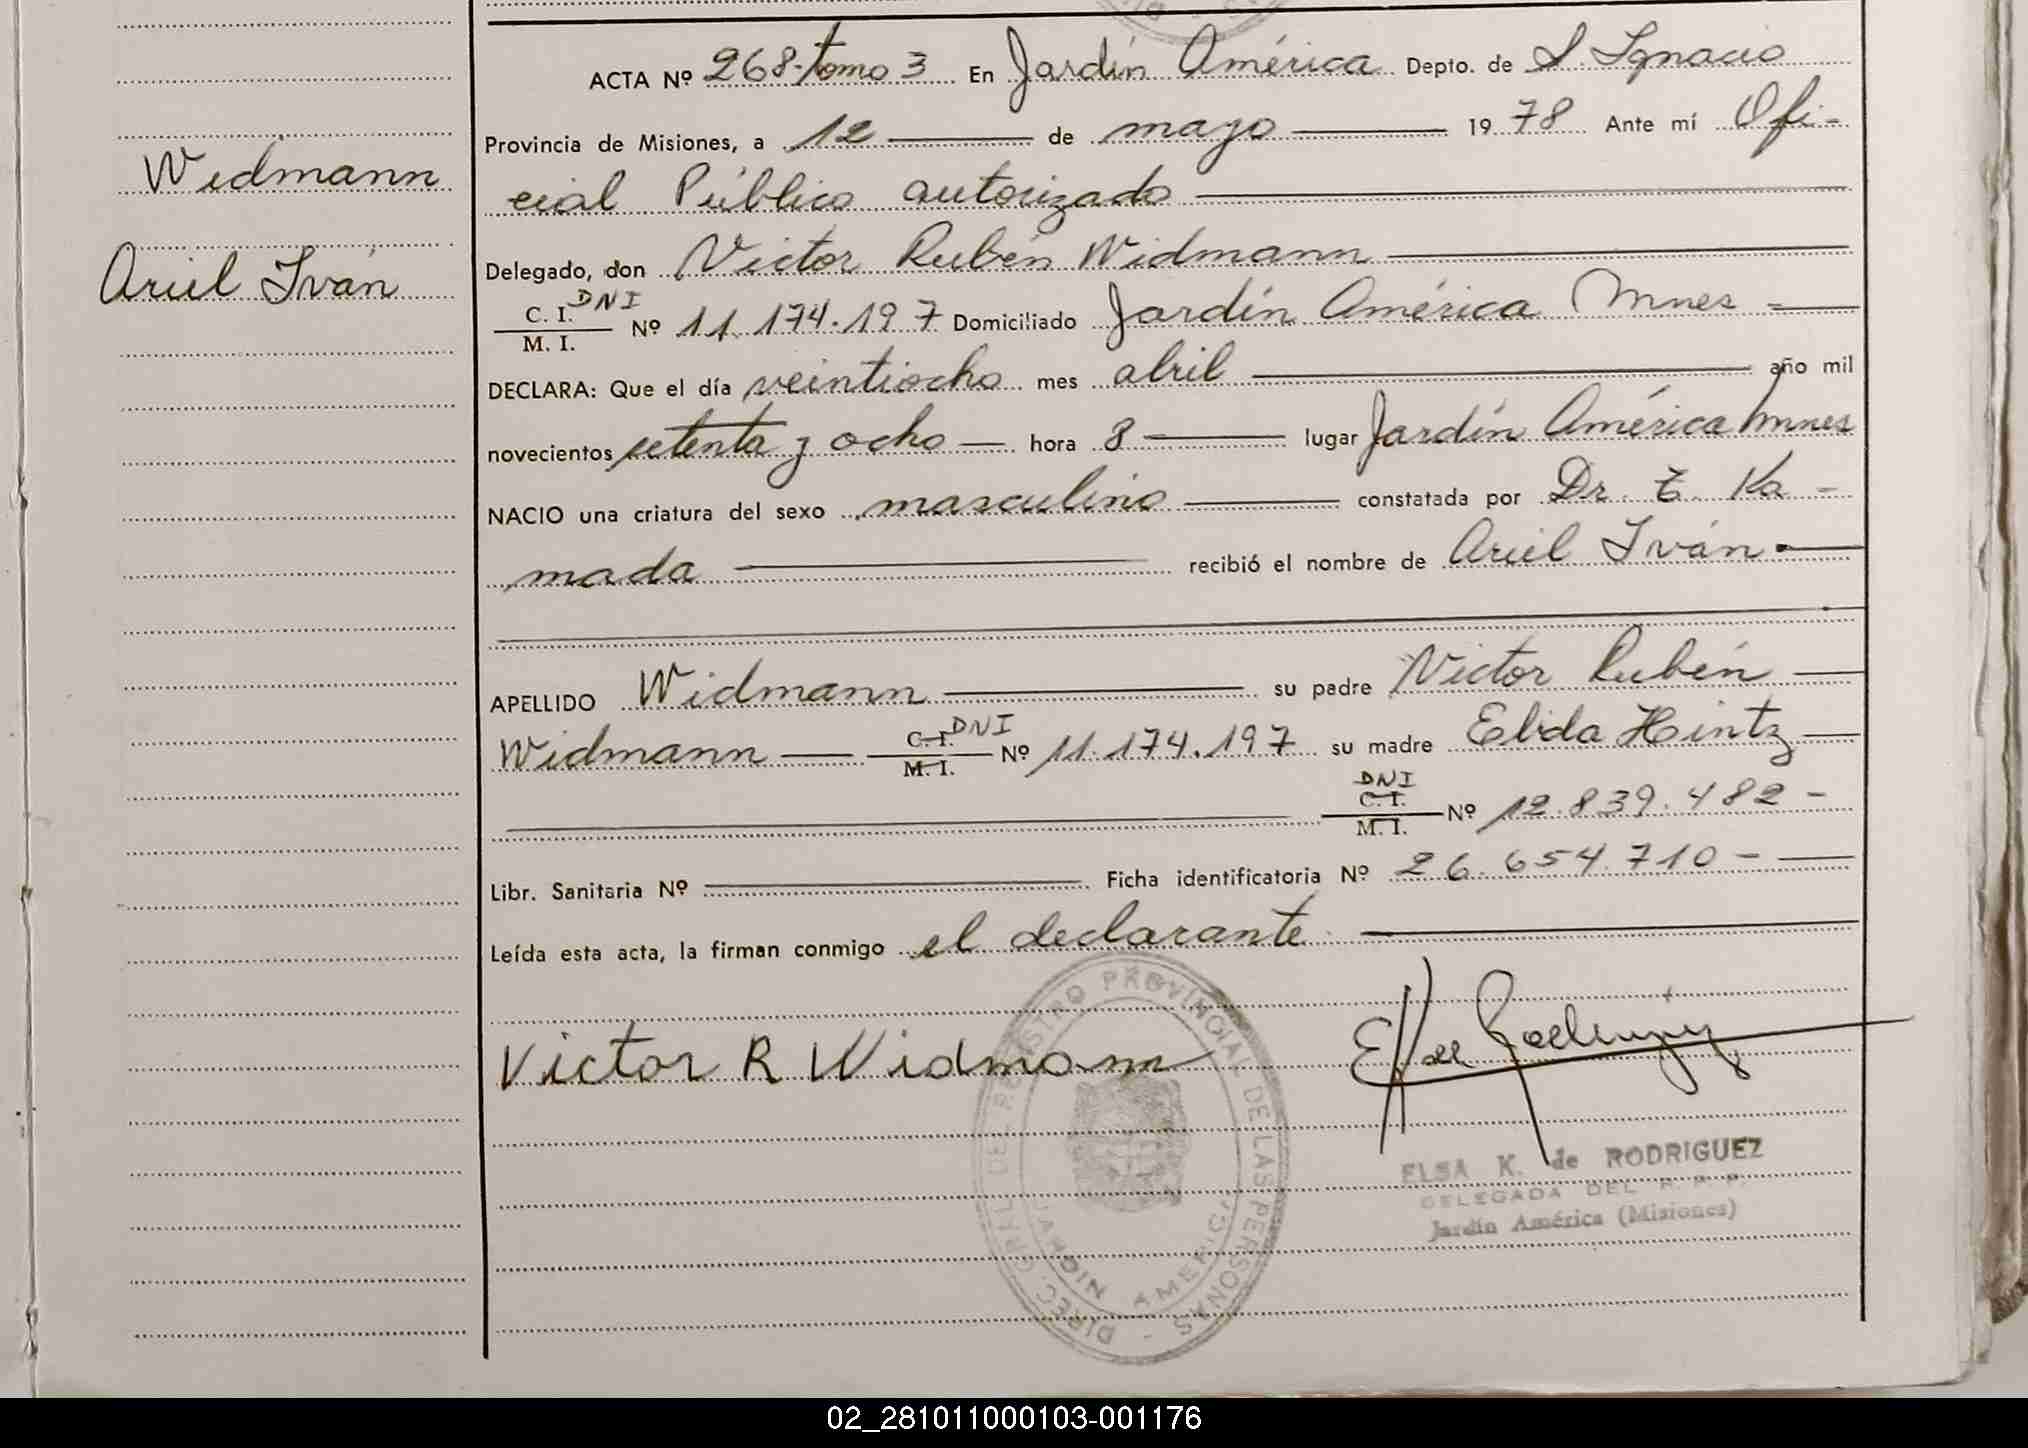 Widmann
Ariel Iván
ACTA Nº 268-tomo 3 En Jardín América Depto. de S. Ignacio
Provincia de Misiones, a 12 de mayo 1978 Ante mí Ofi-
cial Público autorizado
Delegado, don Victor Rubén Widmann
C. I. DNI
M. I. Nº 11.174.197 Domiciliado Jardín América Mnes -
DECLARA: Que el día veintiocho mes abril año mil
novecientos setenta y ocho hora 8 lugar Jardín América Mnes
NACIO una criatura del sexo masculino constatada por Dr. E. Ka-
mada recibió el nombre de Ariel Iván
APELLIDO Widmann su padre Victor Rubén
Widmann C. I. DNI
M. I. Nº 11.174.197 su madre Elida Hintz
DNI
C. I.
M. I. Nº 12.839.482 -
Libr. Sanitaria Nº Ficha identificatoria Nº 26.654.710 -
Leída esta acta, la firman conmigo el declarante
Victor R Widmann
DIREC. GRAL. DEL REGISTRO PROVINCIAL DE LAS PERSONAS -
JARDIN AMERICA
ELSA K. de RODRIGUEZ
DELEGADA DEL R. P. P.
Jardín América (Misiones)
02_281011000103-001176